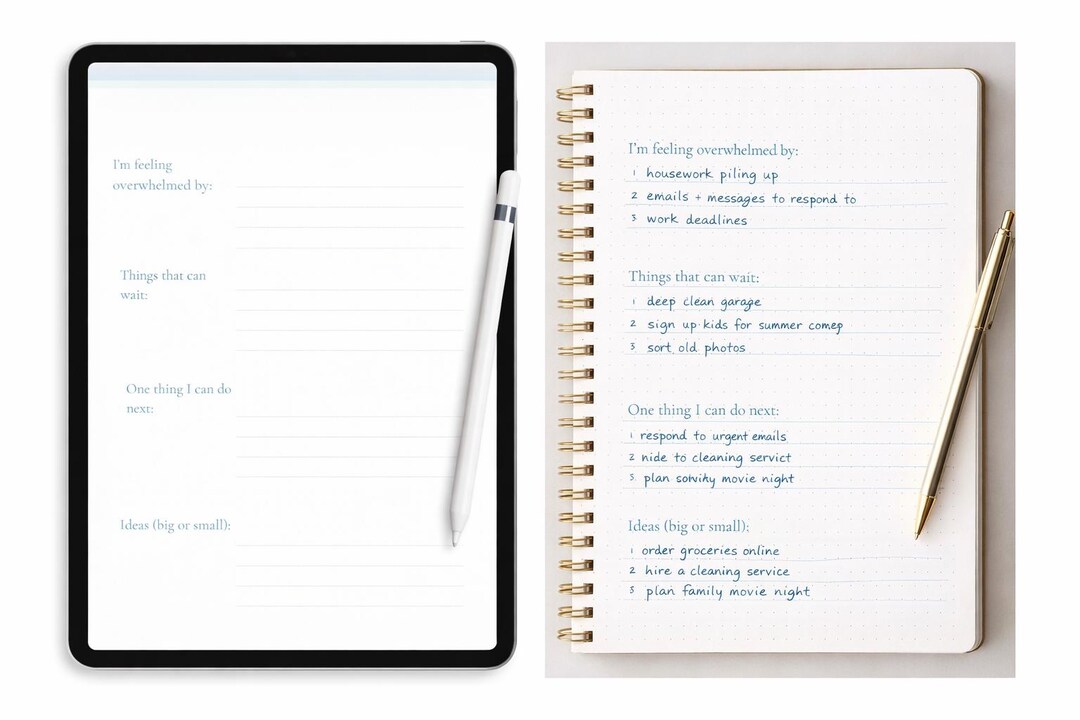 I'm feeling
overwhelmed by:
Things that can
wait:
One thing I can do
next:
Ideas (big or small):
I'm feeling overwhelmed by:
1 housework piling up
2 emails + messages to respond to
3 work deadlines
Things that can wait:
1 deep clean garage
2 sign up kids for summer comep
3 sort old photos
One thing I can do next:
1 respond to urgent emails
2 nide to cleaning servict
3 plan movie night
Ideas (big or small):
1 order groceries online
2 hire a cleaning service
3 plan family movie night